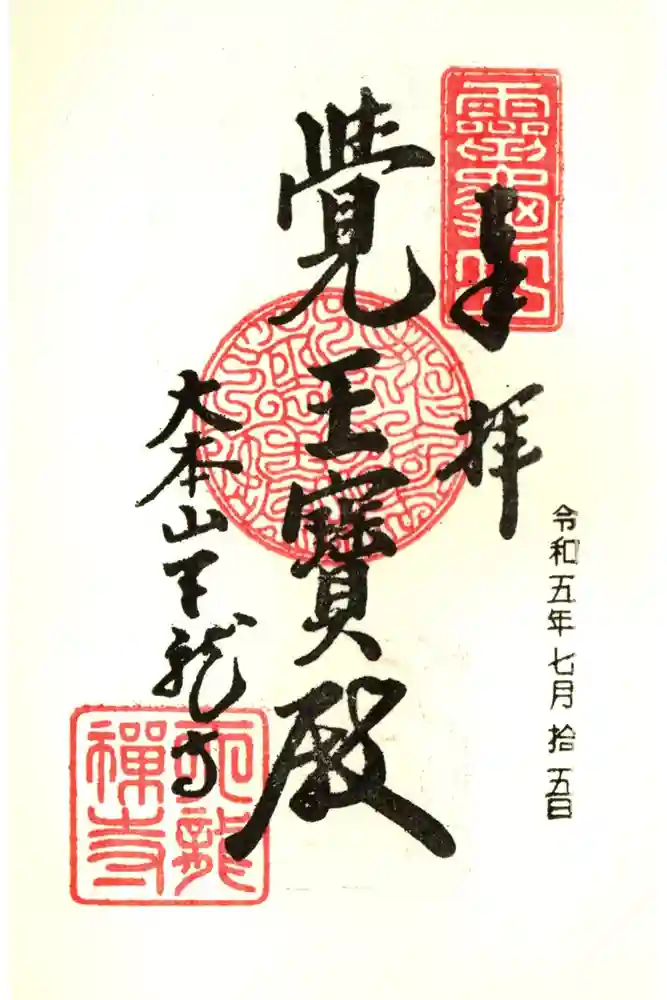 令和五年七月拾五日
靈龜山
奉拝
覺王寶殿
大本山天龍寺
天龍
禪寺